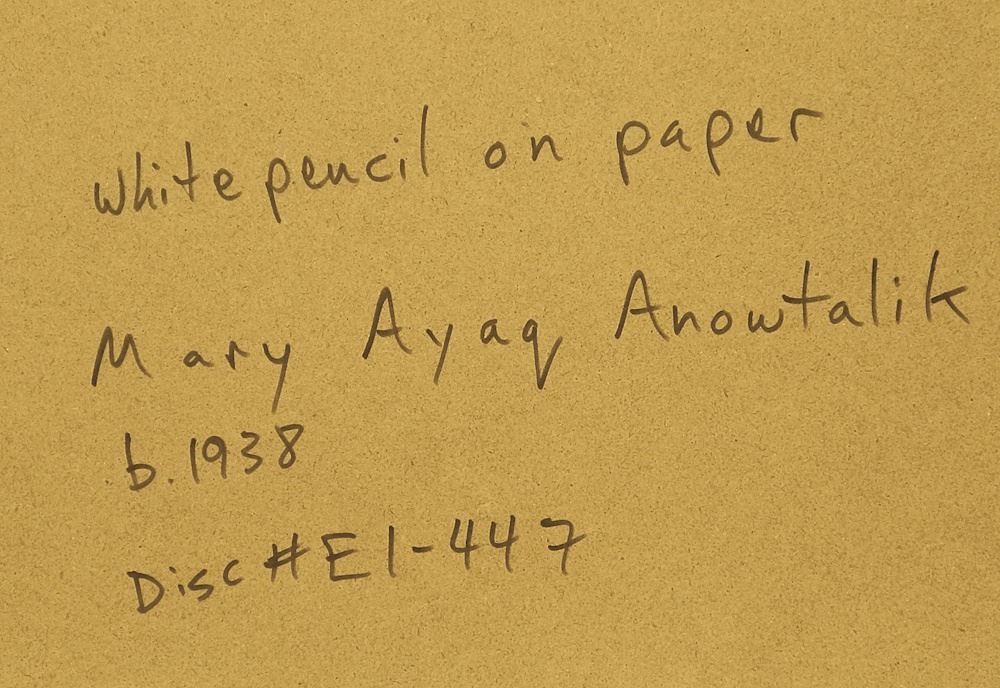 white pencil on paper
Mary Ayaq Anowtalik
b. 1938
Disc # E1-447